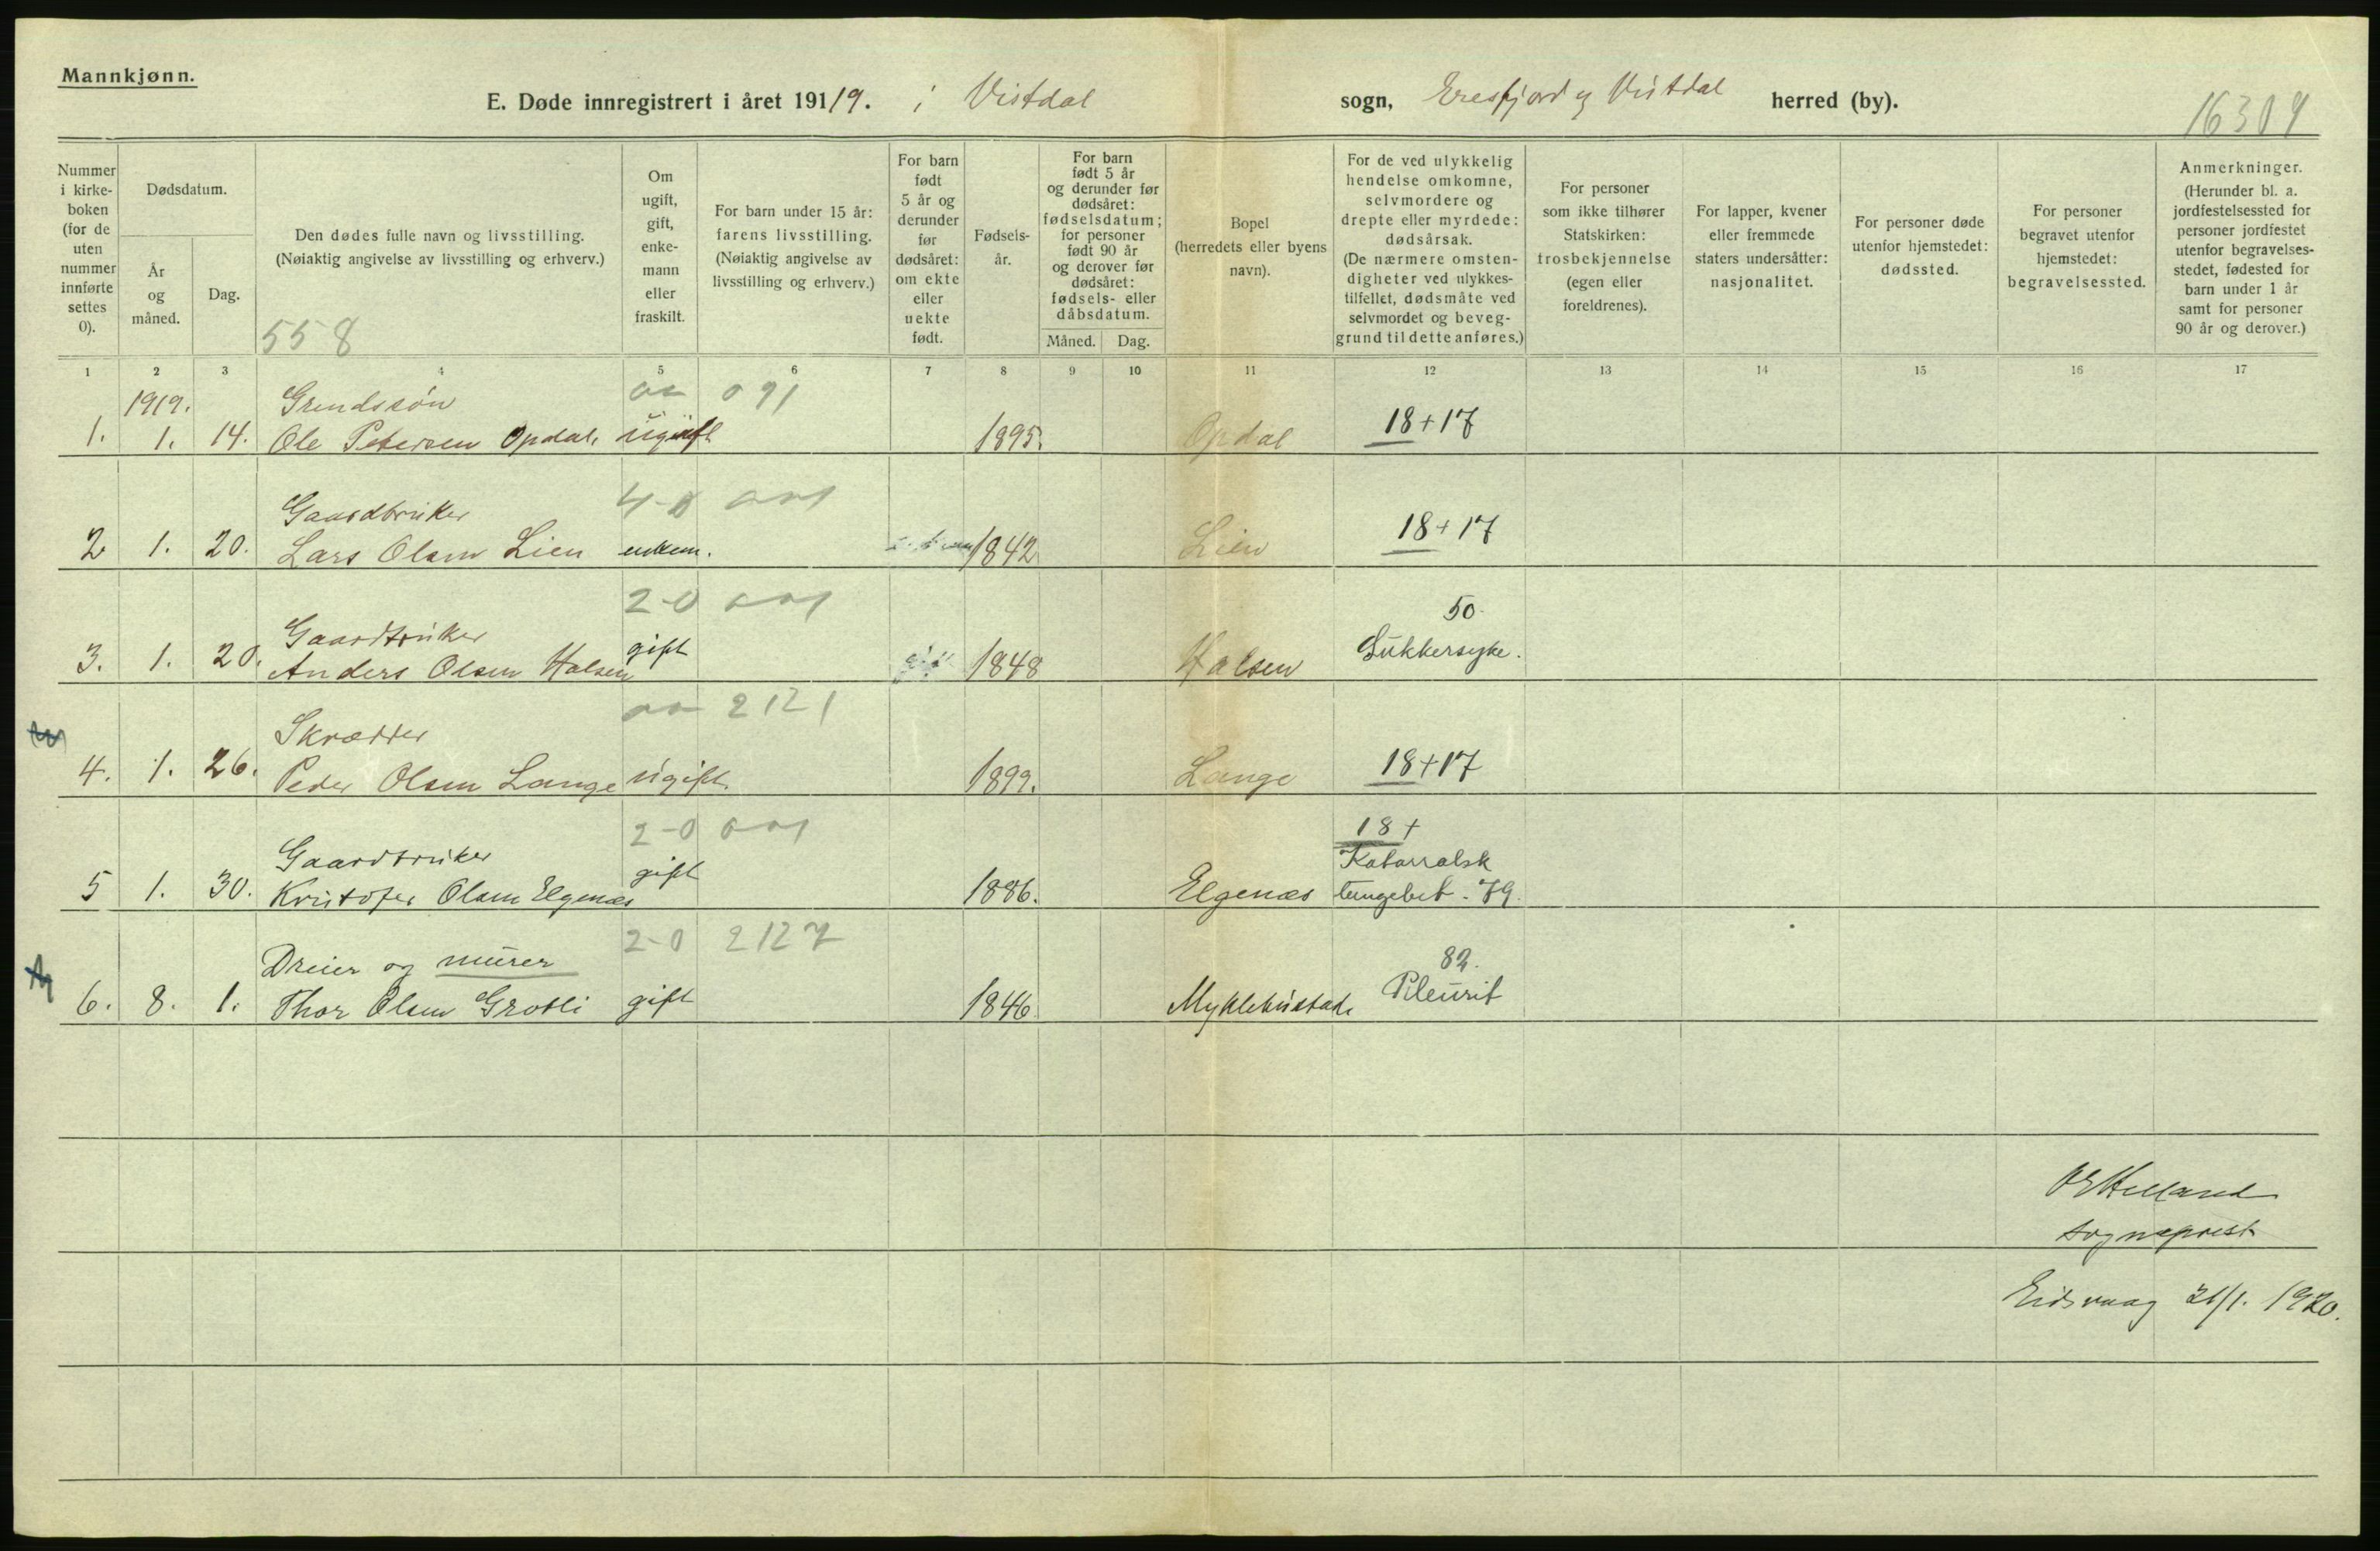 Mannkjønn.
E. Døde innregistrert i året 19119. i Vistdal sogn, Eresfjord og Vistdal herred (by).
16304
Nummer i kirkeboken (for de uten nummer innførte settes 0).
Dødsdatum.
År og måned.
Dag.
Den dødes fulle navn og livsstilling.
(Nøiaktig angivelse av livsstilling og erhverv.)
558
Om ugift, gift, enkemann eller fraskilt.
For barn under 15 år: farens livsstilling.
(Nøiaktig angivelse av livsstilling og erhverv.)
For barn født 5 år og derunder før dødsåret: om ekte eller uekte født.
Fødselsår.
For barn født 5 år og derunder før dødsåret: fødselsdatum; for personer født 90 år og derover før dødsåret: fødsels- eller dåbsdatum.
Måned. Dag.
Bopel (herredets eller byens navn).
For de ved ulykkelig hendelse omkomne, selvmordere og drepte eller myrdede: dødsårsak.
(De nærmere omstendigheter ved ulykkestilfellet, dødsmåte ved selvmordet og beveggrund til dette anføres.)
For personer som ikke tilhører Statskirken: trosbekjennelse (egen eller foreldrenes).
For lapper, kvener eller fremmede staters undersåtter: nasjonalitet.
For personer døde utenfor hjemstedet: dødssted.
For personer begravet utenfor hjemstedet: begravelsessted.
Anmerkninger.
(Herunder bl. a. jordfestelsessted for personer jordfestet utenfor begravelsesstedet, fødested for barn under 1 år samt for personer 90 år og derover.)
1 2 3 4 5 6 7 8 9 10 11 12 13 14 15 16 17
1919. Grundssøn 091
1. 1. 14. Ole Petersen Opdal. ugift 1895. Opdal 18+17
Gaardbruker 4-0
2 1. 20. Lars Olsen Lien enkem. 1842 Lien 18+17
2-0
50
3. 1. 20. Gaardbruker
Anders Olsen Halsen gift 1848 Halsen Sukkersyke.
2121
Skrædder
4. 1. 26. Peder Olsen Lange ugift. 1899. Lange 18+17
2-0
18+
Gaardbruker
5 1. 30. Kristofer Olsen Elgenæs gift 1886. Elgenæs Katarralsk
lungebet. 79.
2-0 2127
Dreier og murer 82.
6. 8. 1. Thor Olsen Grotli gift 1846 Myklebustad. Pleurit
OE Helland
sogneprest
Eidsvaag 21/1. 1920.